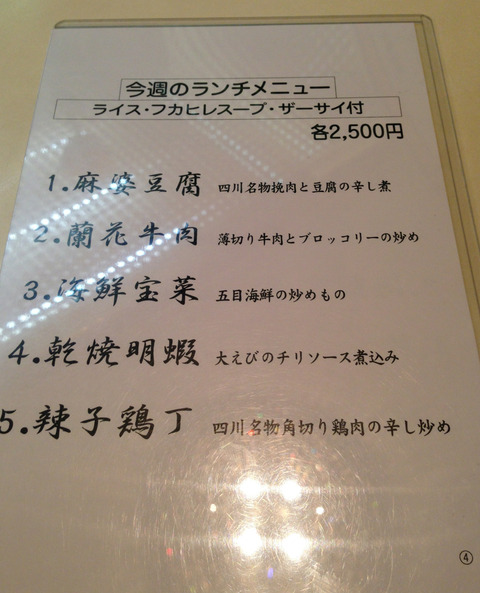 今週のランチメニュー
ライス・フカヒレスープ・ザーサイ付
各2,500円
1.麻婆豆腐 四川名物挽肉と豆腐の辛し煮
2.蘭花牛肉 薄切り牛肉とブロッコリーの炒め
3.海鮮宝菜 五目海鮮の炒めもの
4.乾焼明蝦 大えびのチリソース煮込み
5.辣子鶏丁 四川名物角切り鶏肉の辛し炒め
④